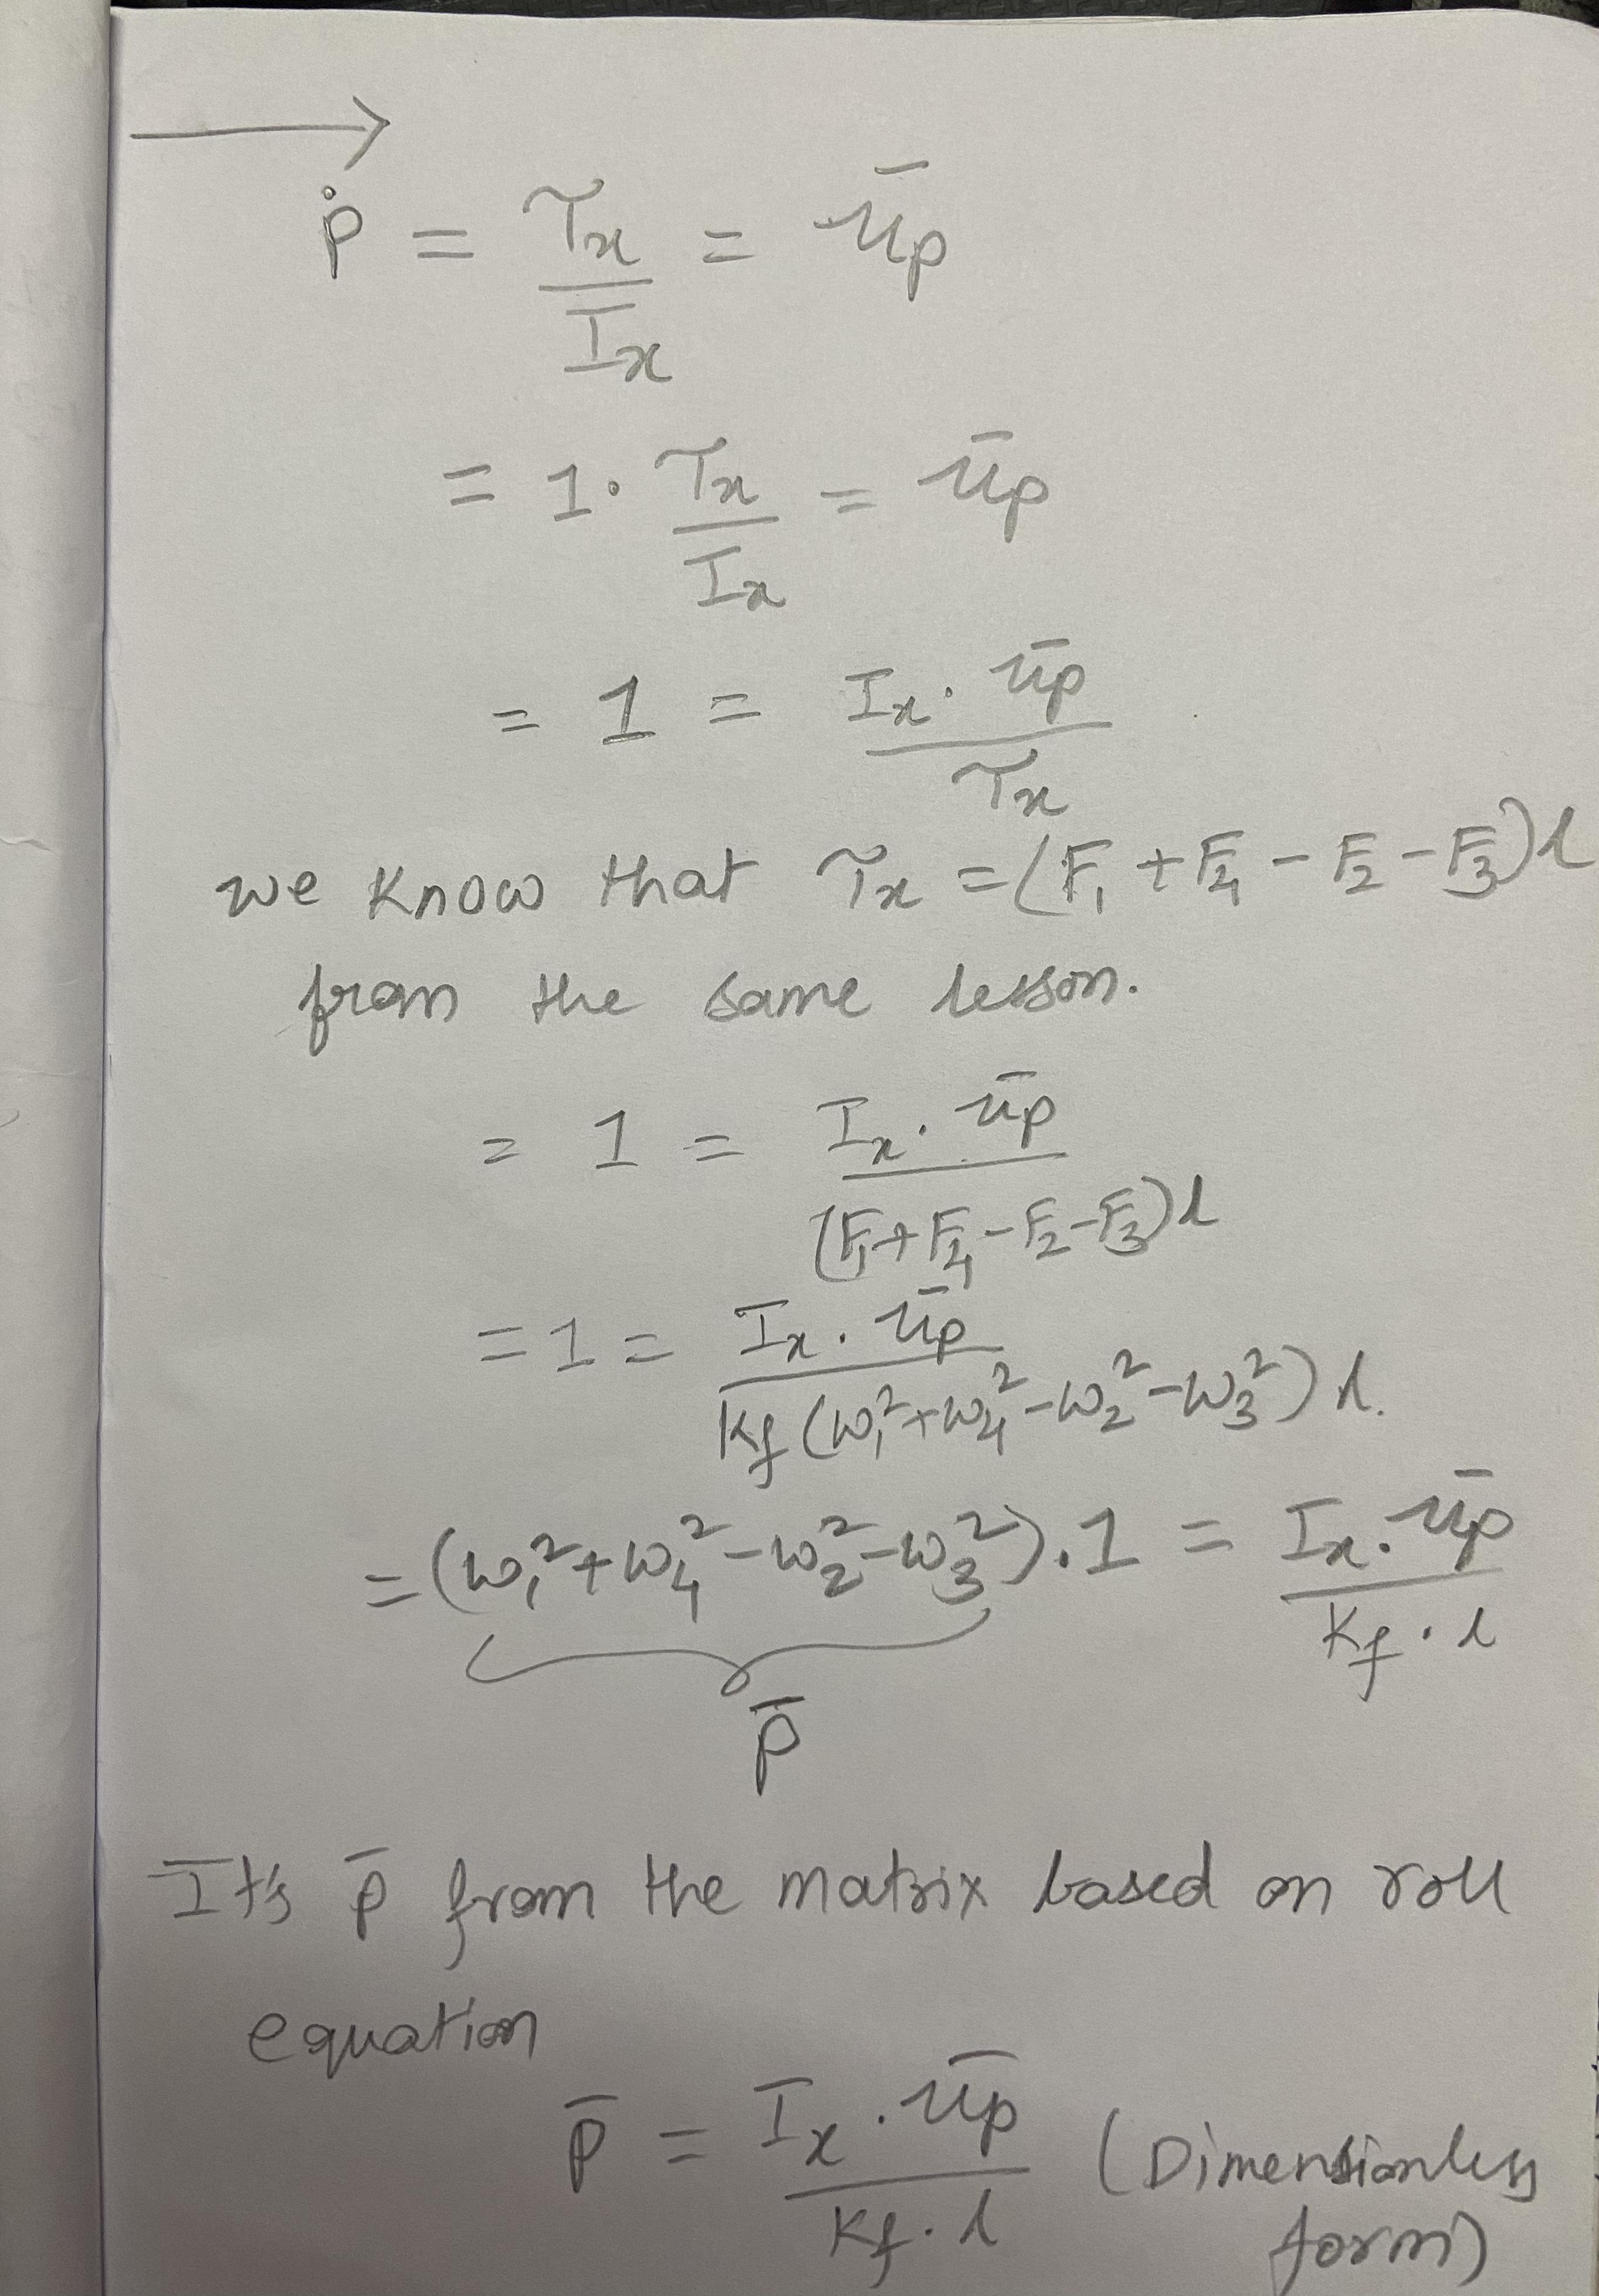 ṗ = τx / Ix = ūp
= 1 · τx / Ix = ūp
= 1 = Ix · ūp / τx
we know that τx = (F1 + F4 - F2 - F3)l
from the same lesson.
= 1 = Ix · ūp / (F1 + F4 - F2 - F3)l
= 1 = Ix · ūp / Kf (ω1² + ω4² - ω2² - ω3²) l.
= (ω1² + ω4² - ω2² - ω3²) · 1 = Ix · ūp / Kf · l
p̄
It's p̄ from the matrix based on roll
equation
p̄ = Ix · ūp / Kf · l (Dimensionless
form)